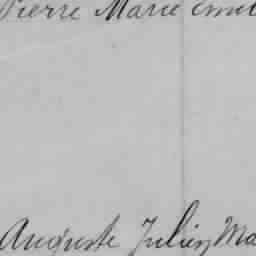 Pierre Marie Emil
Auguste Julien Ma